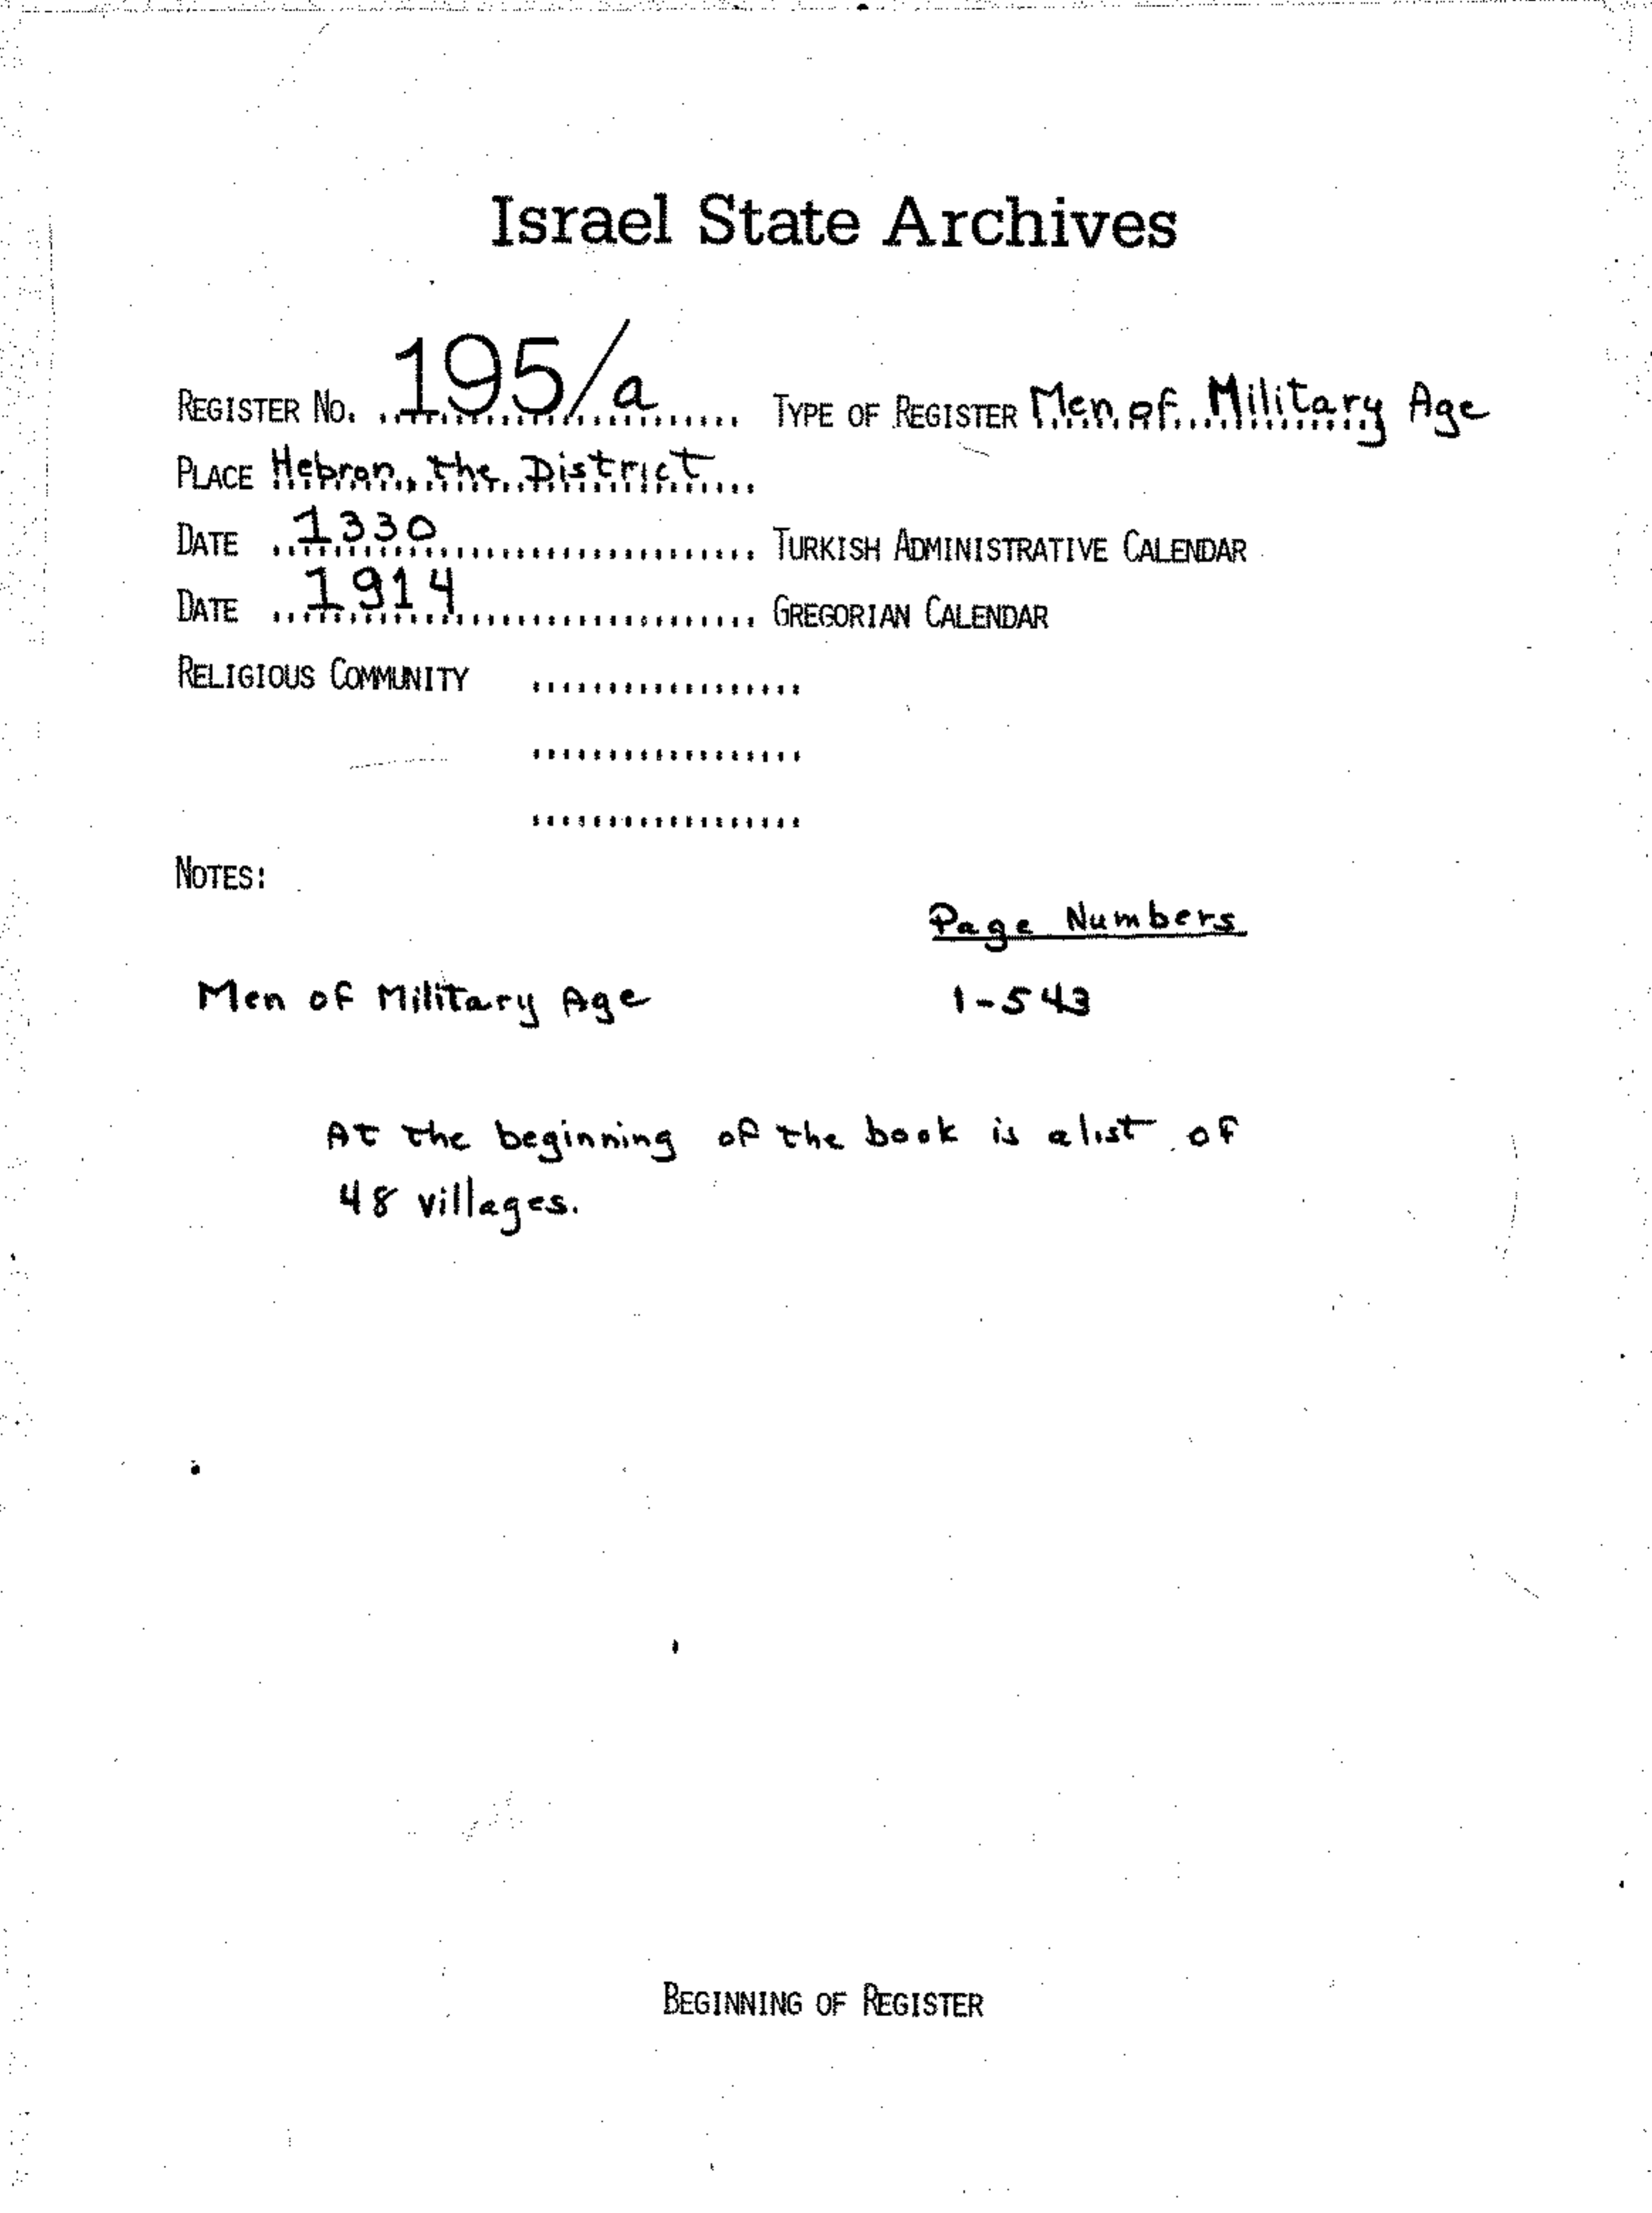 Israel State Archives
REGISTER NO. 195/a TYPE OF REGISTER Men of Military Age
PLACE Hebron, the District
DATE 1330 TURKISH ADMINISTRATIVE CALENDAR
DATE 1914 GREGORIAN CALENDAR
RELIGIOUS COMMUNITY
NOTES:
Page Numbers
Men of Military Age 1-543
At the beginning of the book is a list of
48 villages.
BEGINNING OF REGISTER